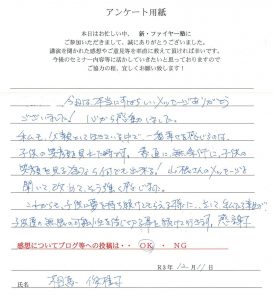 アンケート用紙
本日はお忙しい中、新・ファイヤー塾に
ご参加いただきまして、誠にありがとうございました。
講演を聞かれた感想やご意見等を率直に教えて頂ければ幸いです。
今後のセミナー内容等に活かしていきたいと思っておりますので
ご協力の程、宜しくお願い致します！
今日は本当にすばらしいメッセージをありがとう
ございました！心から感動しました。
私も、父親としてはたらいている中で、一番幸せを感じるのは
子供の笑顔を見た時です。素直に無条件に、子供の
笑顔を見る為なら何でも出来る！山

さんのメッセージを
聞いて改めて、そう強く感じました。
これからも、子供に夢を持ち続けてもらえる様に、そして私たち親が
子供達の無限の可能性を信じて
続けて行きます。感謝
感想についてブログ等への投稿は・・ OK ・ NG
R3年12月11日
氏名